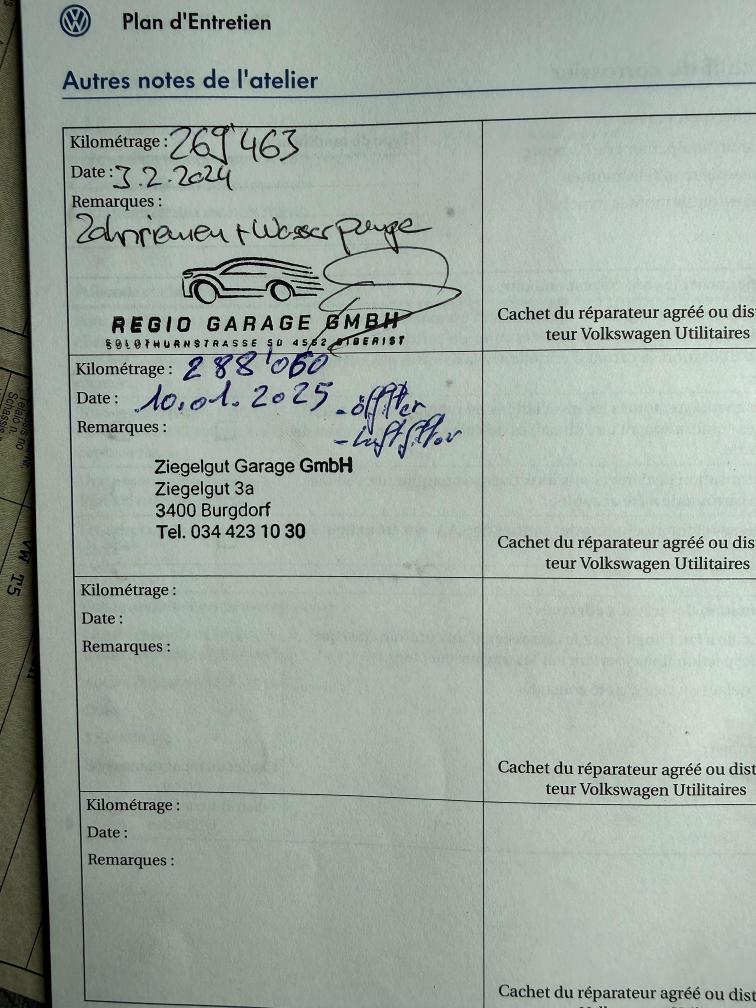 Plan d'Entretien
Autres notes de l'atelier
Kilométrage : 269'463
Date : 3.2.2024
Remarques :
Zahnriemen + Wasserpumpe
REGIO GARAGE GMBH
SOLOTHURNSTRASSE 50 4562 BIBERIST
Cachet du réparateur agréé ou dis
teur Volkswagen Utilitaires
Kilométrage : 288'060
Date : 10.01.2025 - ölfilter
Remarques : - Luftfilter
Ziegelgut Garage GmbH
Ziegelgut 3a
3400 Burgdorf
Tel. 034 423 10 30
Cachet du réparateur agréé ou dis
teur Volkswagen Utilitaires
Kilométrage :
Date :
Remarques :
Cachet du réparateur agréé ou dist
teur Volkswagen Utilitaires
Kilométrage :
Date :
Remarques :
Cachet du réparateur agréé ou dist
VW T5